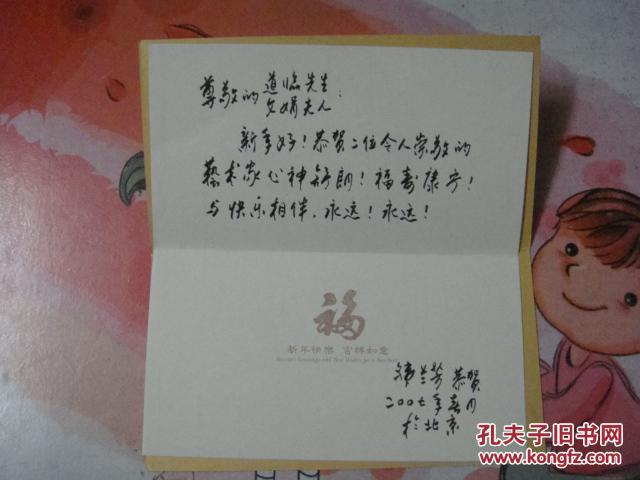 尊敬的道临先生
文娟夫人：
新年好！恭贺二位令人崇敬的
艺术家心神舒朗！福寿康宁！
与快乐相伴，永远！永远！
福
新年快乐 吉祥如意
Season's Greetings and Best Wishes for a New Year
兰芳 恭贺
二〇〇七年春月
於北京
孔夫子旧书网
www.kongfz.com